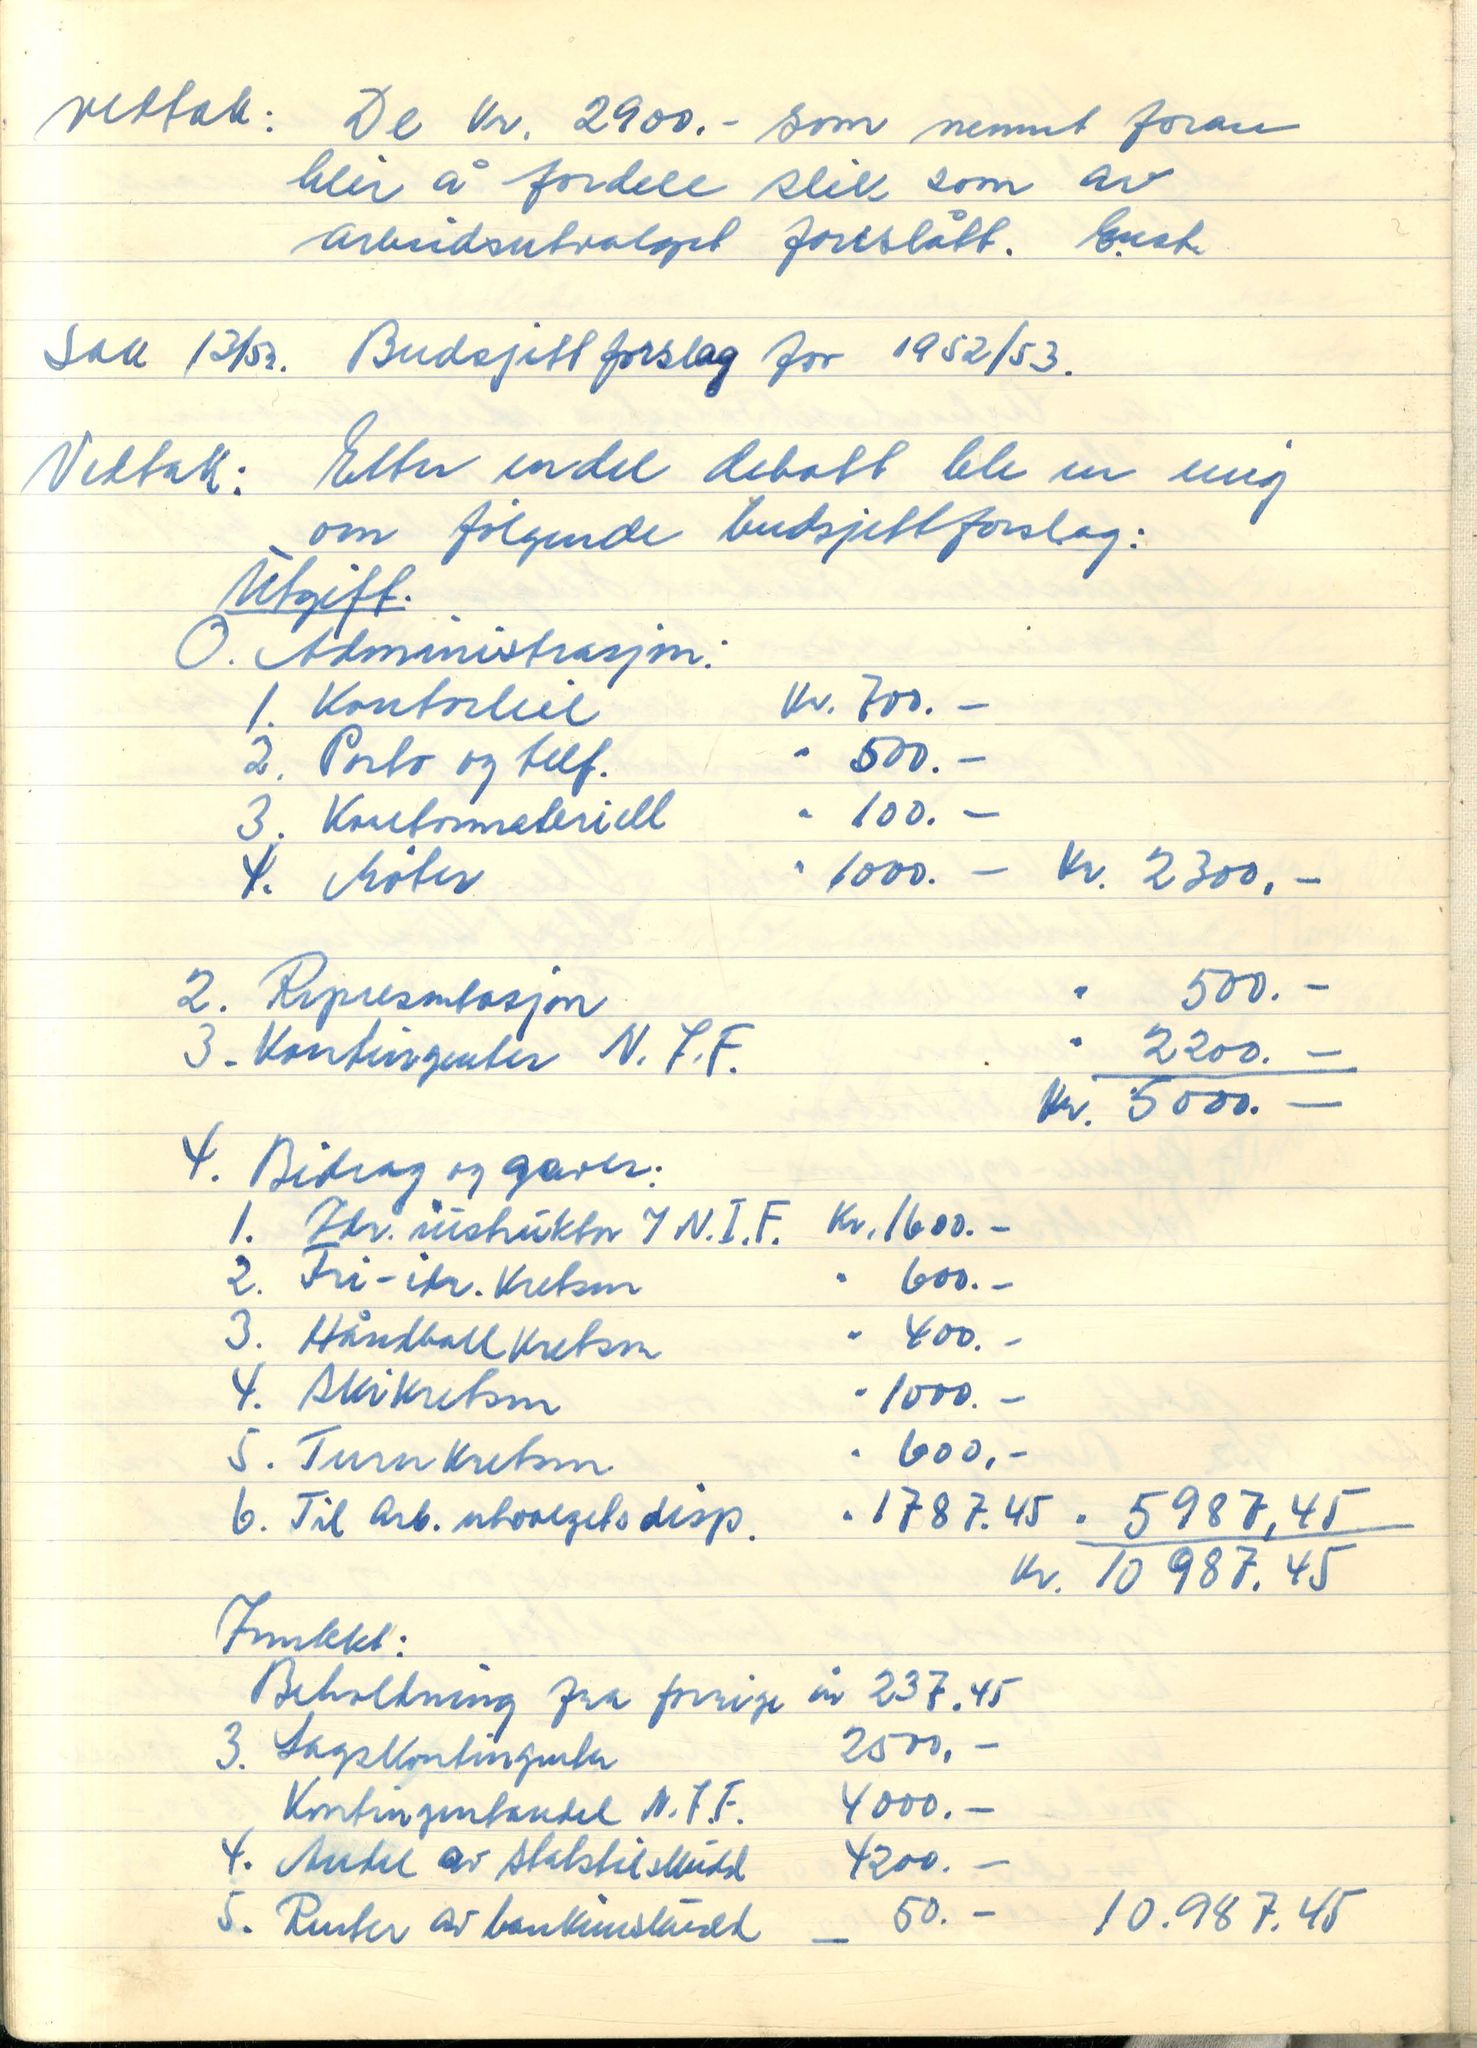 Vedtak: De kr. 2900.- som nemnt foran
blir å fordele slik som av
arbeidsutvalget foreslått. Enst.
Sak 13/52. Budsjettforslag for 1952/53.
Vedtak: Etter endel debatt ble en enig
om følgende budsjettforslag:
Utgift.
0. Administrasjon:
1. Kontorleie Kr. 700.-
2. Porto og telf. " 500.-
3. Kontormateriell " 100.-
4. Møter " 1000.- Kr. 2300,-
2. Representasjon " 500.-
3. Kontingenter N.I.F. " 2200.-
Kr. 5000.-
4. Bidrag og gaver:
1. Idr. instruktør I N.I.F. Kr. 1600.-
2. Fri-idr. kretsen " 600.-
3. Håndballkretsen " 400.-
4. Skikretsen " 1000.-
5. Turnkretsen " 600,-
6. Til arb. utvalgets disp. " 1787.45 " 5987,45
Kr. 10 987.45
Inntekt:
Beholdning fra forrige år 237.45
3. Lagskontingenter 2500,-
Kontingentandel N.I.F. 4000.-
4. Andel av statstilskudd 4200.-
5. Renter av bankinnskudd 50.- 10.987.45